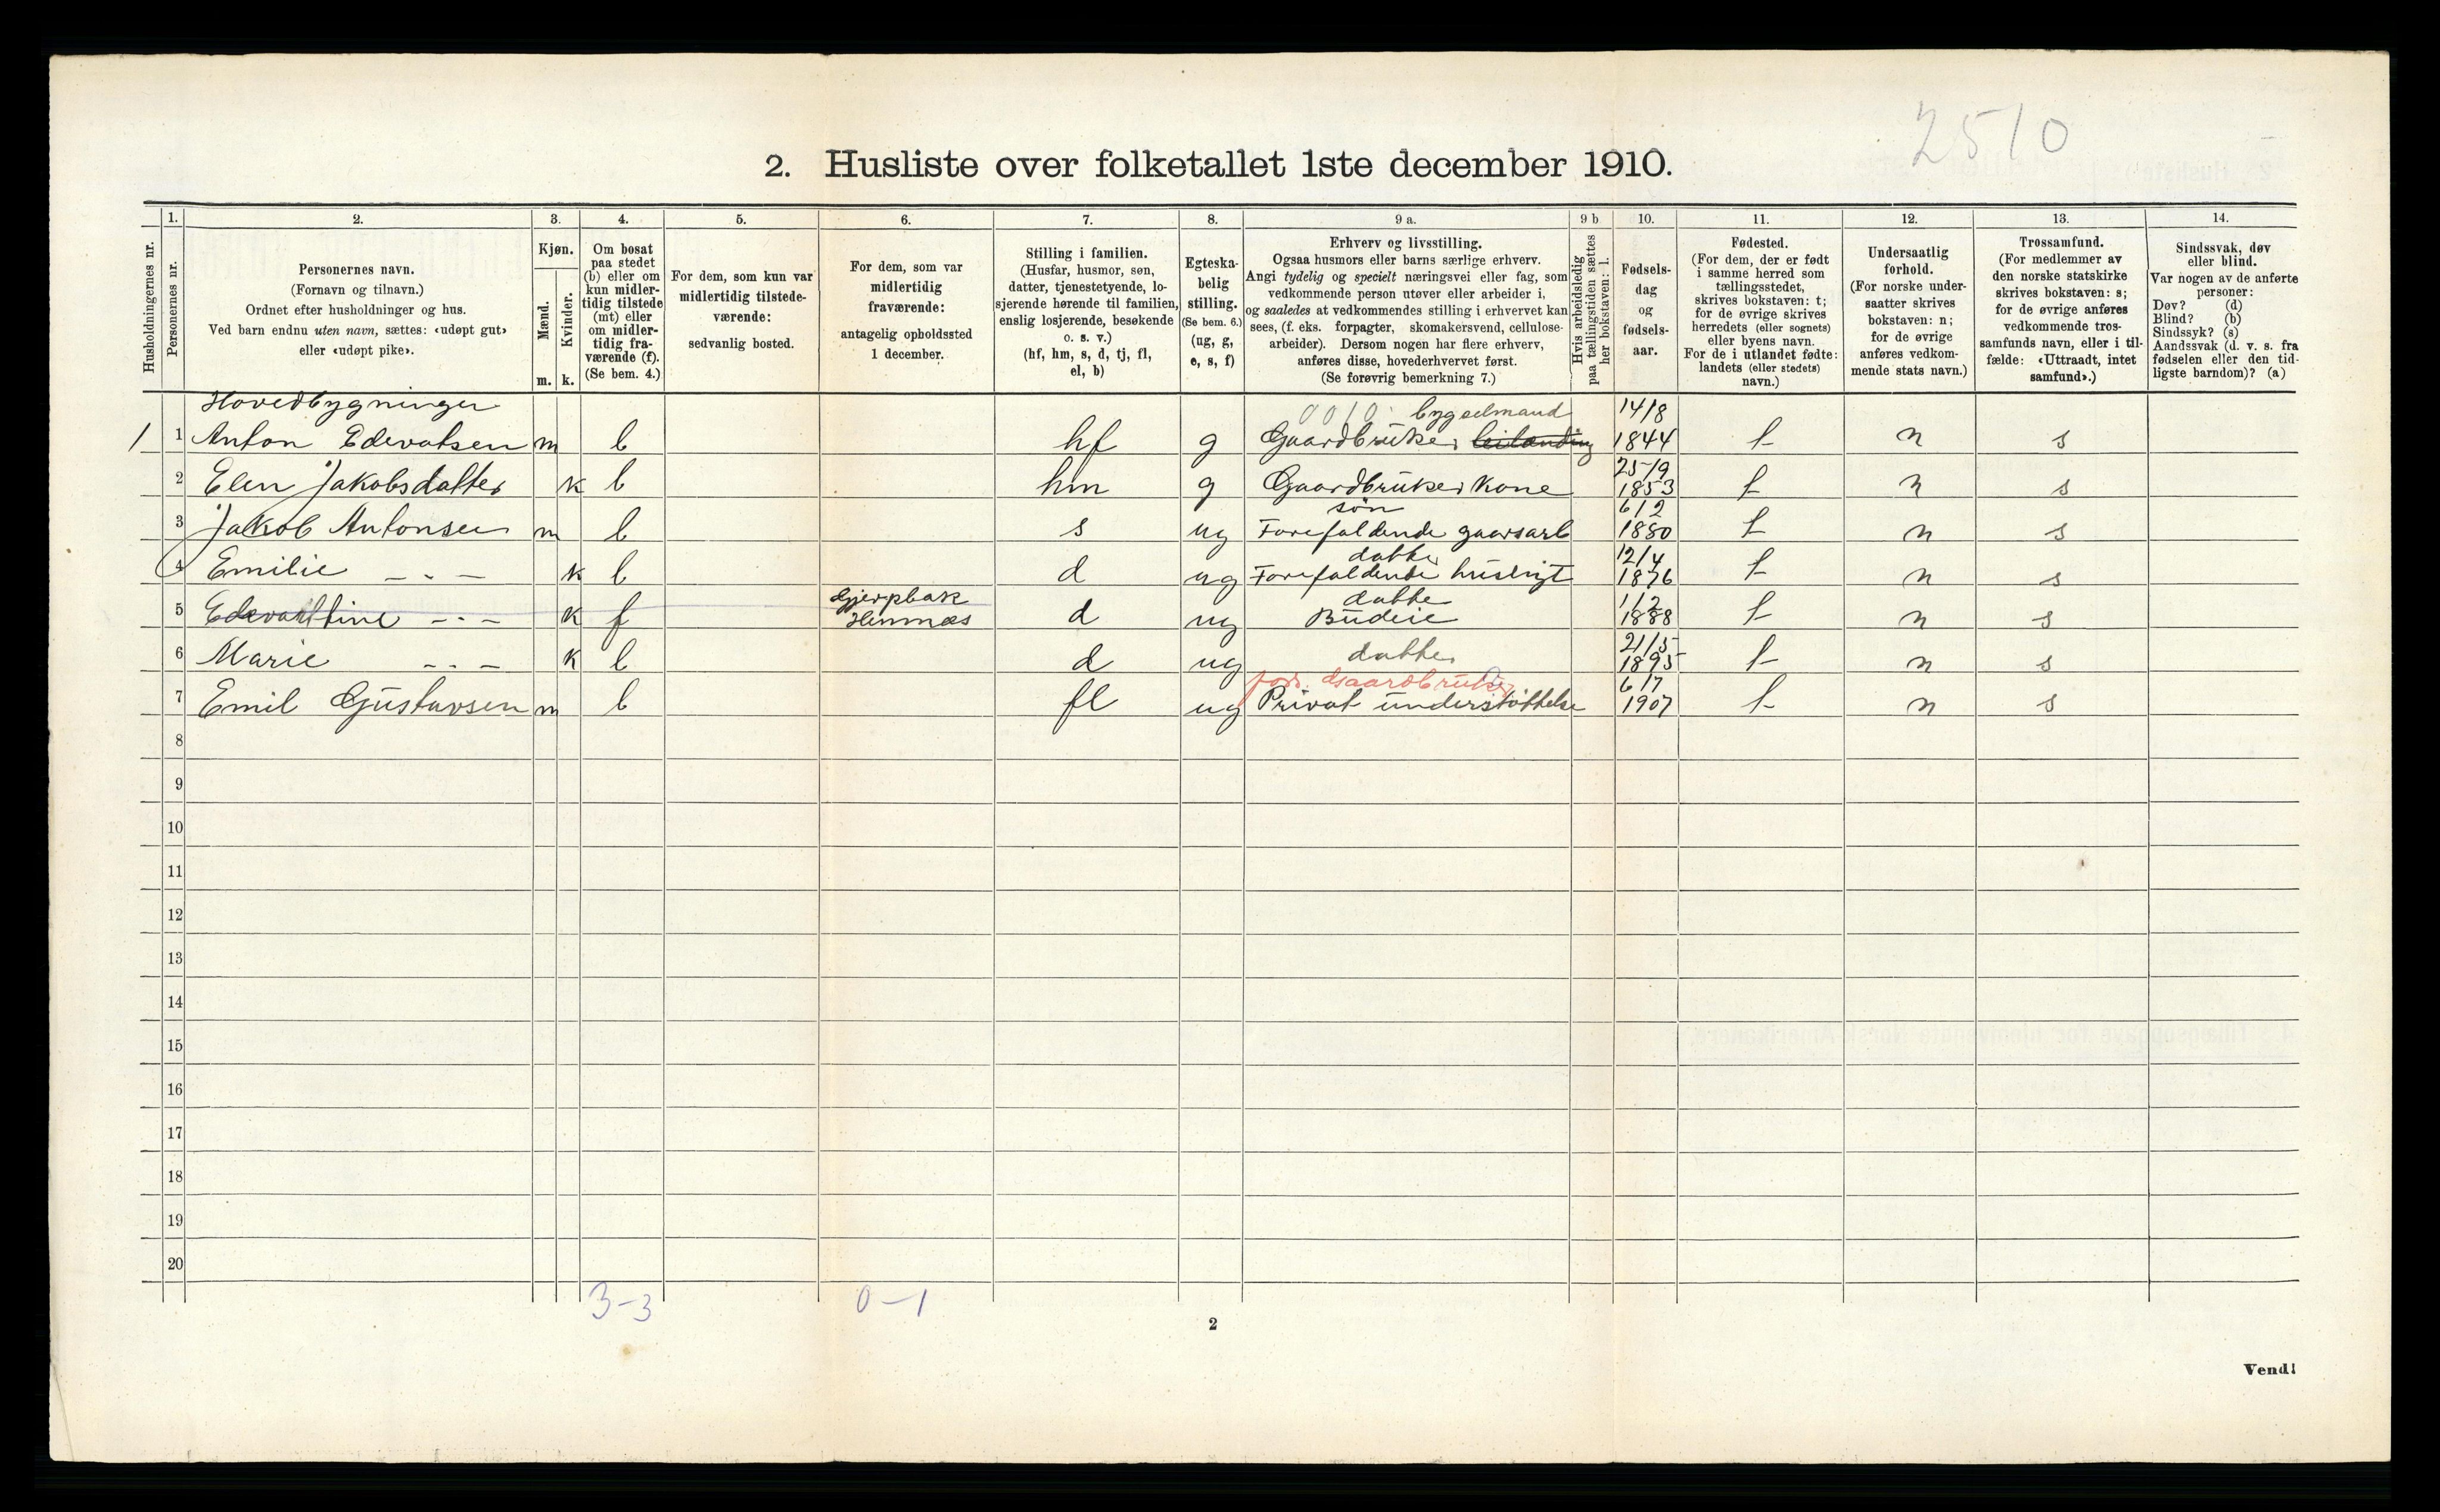 2510
2. Husliste over folketallet 1ste december 1910.
Husholdningernes nr.
1.
Personernes nr.
2.
Personernes navn.
(Fornavn og tilnavn.)
Ordnet efter husholdninger og hus.
Ved barn endnu uten navn, sættes: «udøpt gut»
eller «udøpt pike».
3.
Kjøn.
Mænd.
Kvinder.
m. k.
4.
Om bosat
paa stedet
(b) eller om
kun midler-
tidig tilstede
(mt) eller
om midler-
tidig fra-
værende (f).
(Se bem. 4.)
5.
For dem, som kun var
midlertidig tilstede-
værende:
sedvanlig bosted.
6.
For dem, som var
midlertidig
fraværende:
antagelig opholdssted
1 december.
7.
Stilling i familien.
(Husfar, husmor, søn,
datter, tjenestetyende, lo-
sjerende hørende til familien,
enslig losjerende, besøkende
o. s. v.)
(hf, hm, s, d, tj, fl,
el, b)
8.
Egteska-
belig
stilling.
(Se bem. 6.)
(ug, g,
e, s, f)
9 a.
Erhverv og livsstilling.
Ogsaa husmors eller barns særlige erhverv.
Angi tydelig og specielt næringsvei eller fag, som
vedkommende person utøver eller arbeider i,
og saaledes at vedkommendes stilling i erhvervet kan
sees, (f. eks. forpagter, skomakersvend, cellulose-
arbeider). Dersom nogen har flere erhverv,
anføres disse, hovederhvervet først.
(Se forøvrig bemerkning 7.)
9 b
Hvis arbeidsledig
paa tællingstiden sættes
her bokstaven: l.
10.
Fødsels-
dag
og
fødsels-
aar.
11.
Fødested.
(For dem, der er født
i samme herred som
tællingsstedet,
skrives bokstaven: t;
for de øvrige skrives
herredets (eller sognets)
eller byens navn.
For de i utlandet fødte:
landets (eller stedets)
navn.)
12.
Undersaatlig
forhold.
(For norske under-
saatter skrives
bokstaven: n;
for de øvrige
anføres vedkom-
mende stats navn.)
13.
Trossamfund.
(For medlemmer av
den norske statskirke
skrives bokstaven: s;
for de øvrige anføres
vedkommende tros-
samfunds navn, eller i til-
fælde: «Uttraadt, intet
samfund».)
14.
Sindssvak, døv
eller blind.
Var nogen av de anførte
personer:
Døv? (d)
Blind? (b)
Sindssyk? (s)
Aandssvak (d. v. s. fra
fødselen eller den tid-
ligste barndom)? (a)
Hovedbygninger
0010. bygselmand 14/8
1 1 Anton Edevatsen m b hf g Gaardbruker leilænding 1844 t n s
25/9
2 Elen Jakobsdatter k b hm g Gaardbruker Kone 1853 t n s
søn 6/2
3 Jakob Antonsen m b s ug Forefaldende gaarsarb 1880 t n s
datter 12/4
4 Emilie — - — k b d ug Forefaldende husligt 1876 t n s
Gjerpbak datter 1/2
5 Edevartine — - — k f Hemnæs d ug Budeie 1888 t n s
21/5
6 Marie — - — k b d ug datter 1895 t n s
fors. Gaardbruker 6/7
7 Emil Gustavsen m b fl ug Privat understøttelse 1907 t n s
8
9
10
11
12
13
14
15
16
17
18
19
20
3-3 0-1
2
Vend!